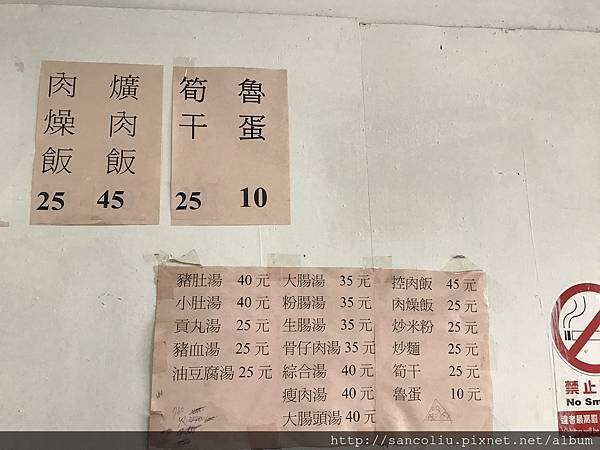 爌肉飯 45
肉燥飯 25
魯蛋 10
筍干 25
豬肚湯 40元
小肚湯 40元
貢丸湯 25元
豬血湯 25元
油豆腐湯 25元
大腸湯 35元
粉腸湯 35元
生腸湯 35元
骨仔肉湯 35元
綜合湯 40元
瘦肉湯 40元
大腸頭湯 40元
控肉飯 45元
肉燥飯 25元
炒米粉 25元
炒麵 25元
筍干 25元
魯蛋 10元
禁止
No Sm
違者最高罰
http://sancoliu.pixnet.net/album